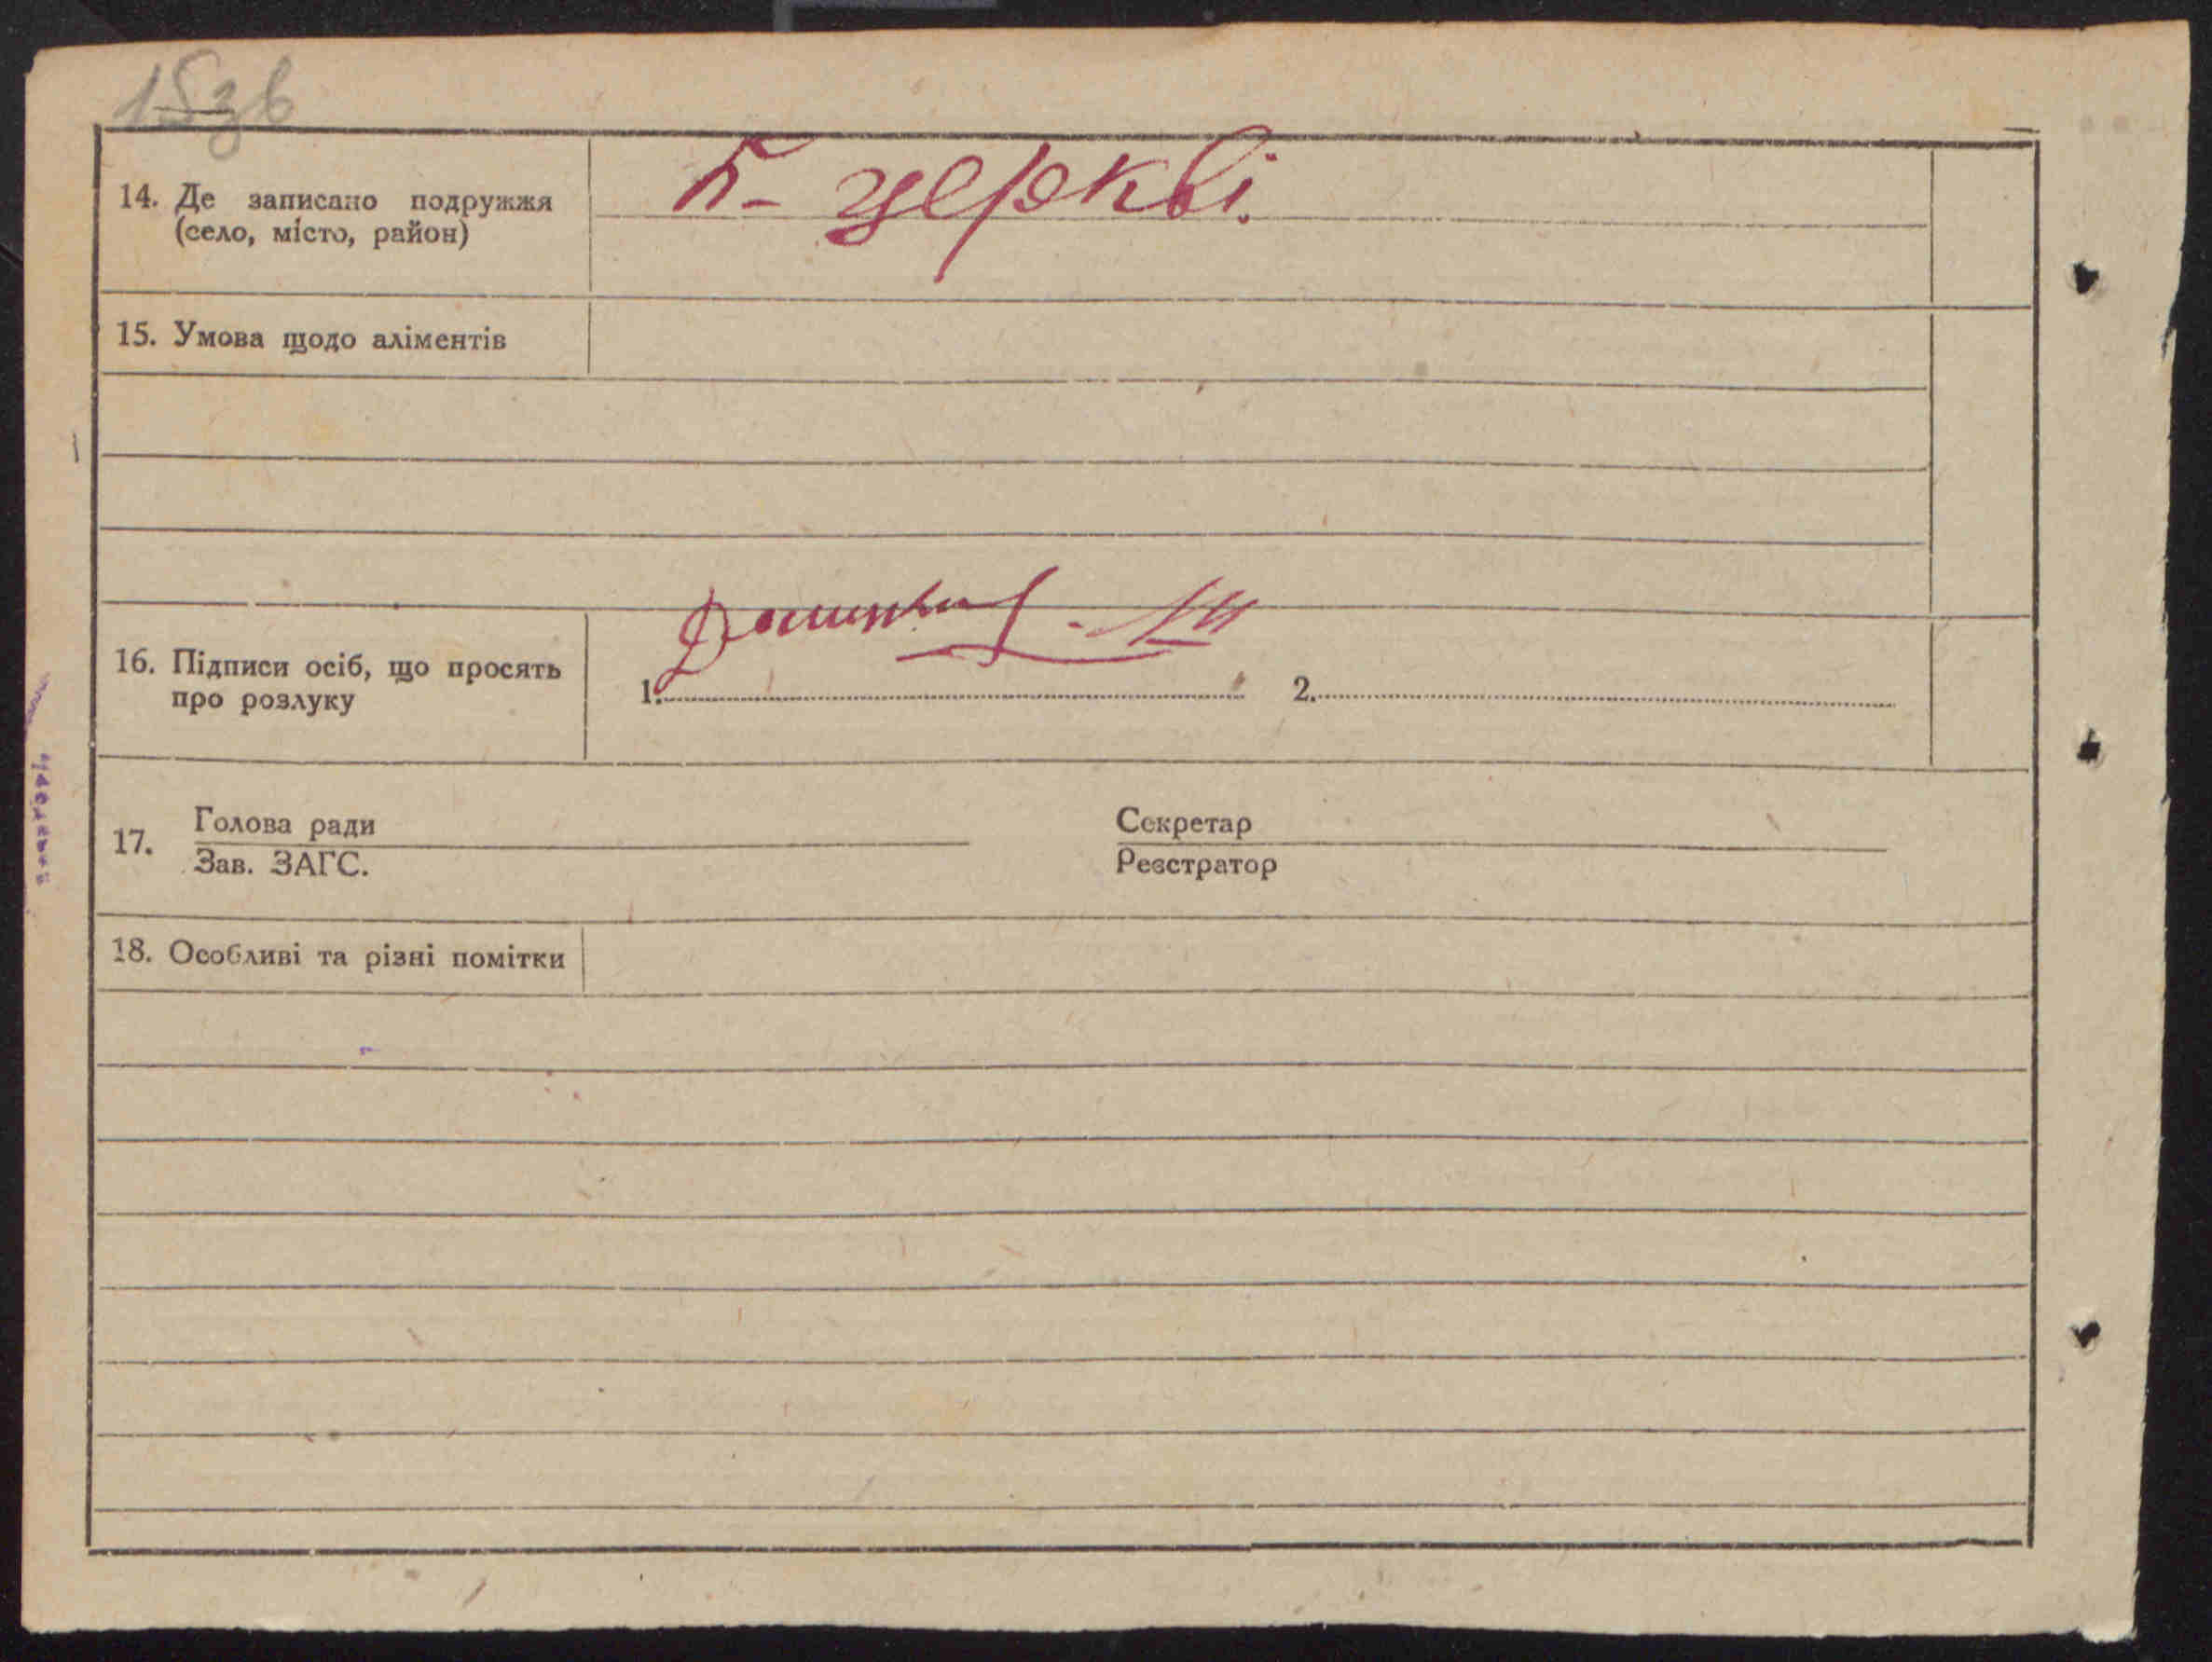 153в
14. Де записано подружжя
(село, місто, район)
Б- церкві.
15. Умова щодо аліментів
16. Підписи осіб, що просять
про розлуку
1.
2.
17.
Голова ради
Зав. ЗАГС.
Секретар
Реєстратор
18. Особливі та різні помітки